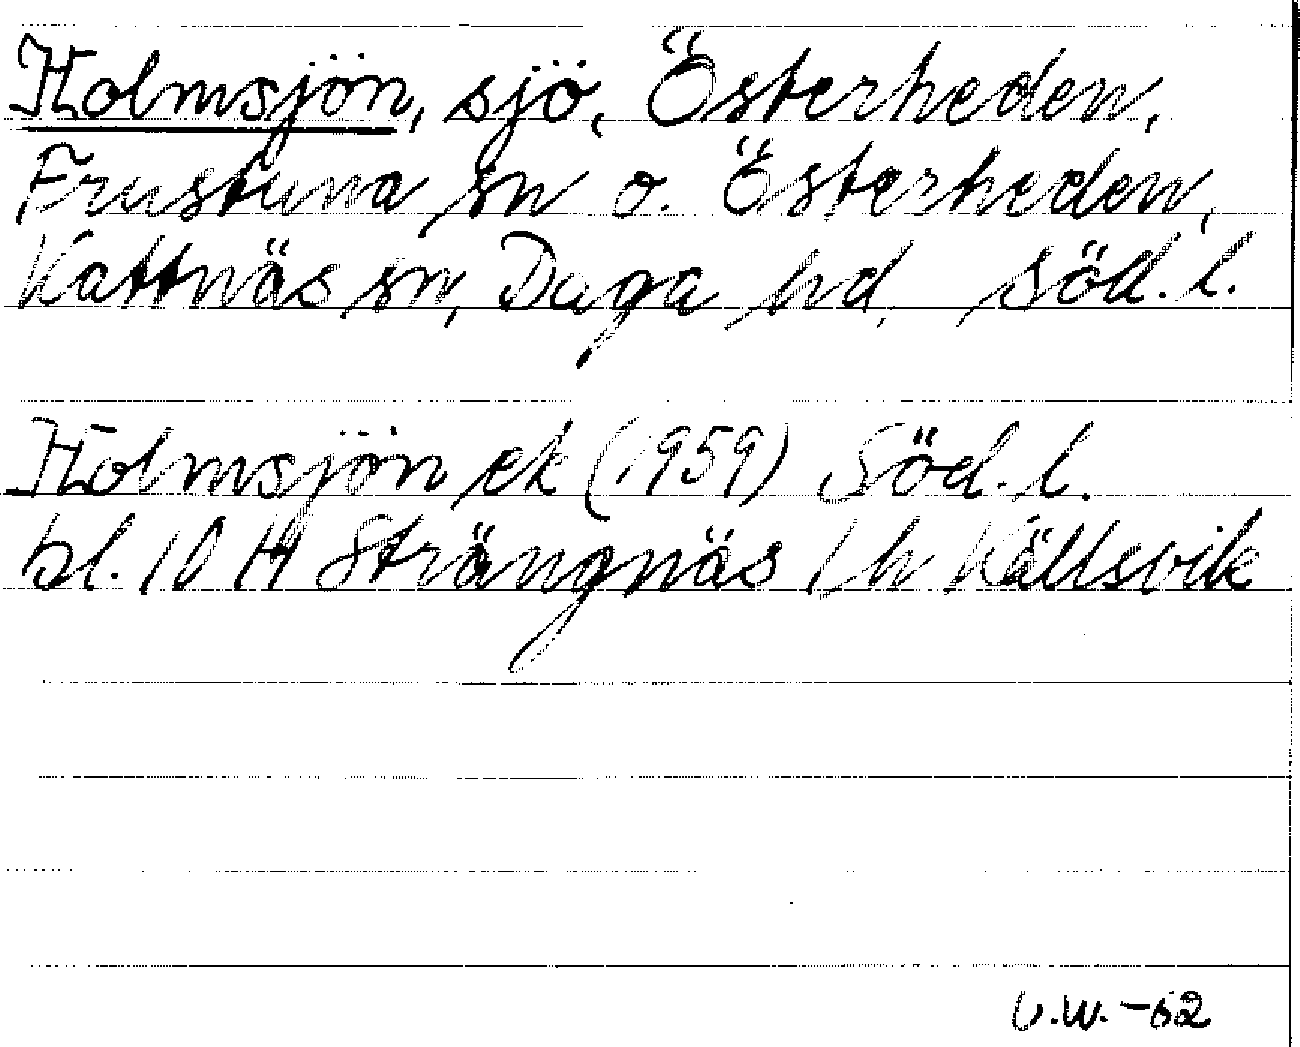 Holmsjön, sjö, Österheden,
Frustuna sn o. Österheden,
Kattnäs sn, Daga hd, söd. l.
Holmsjön ek (1959) Söd. l.
bl. 10 H Strängnäs 1 h Källsvik
U.W. -62